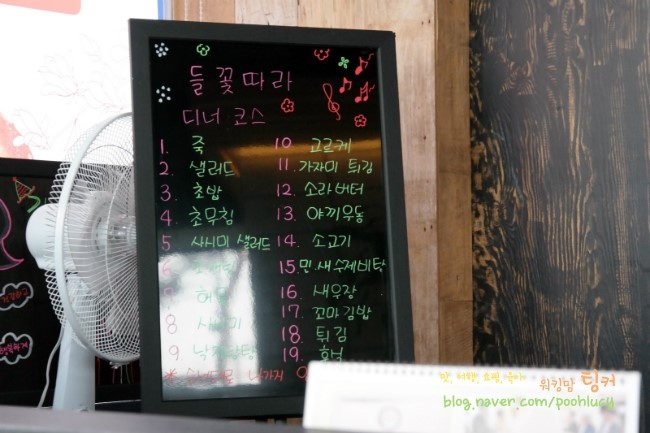 들꽃따라
디너 코스
1. 죽
2. 샐러드
3. 초밥
4. 초무침
5 사시미 샐러드
6
7
8 사시미
9.
10 고르케
11. 가자미 튀김
12. 소라버터
13. 야끼우동
14. 소고기
15. 민.새수제비탕
16. 새우장
17. 꼬마김밥
18. 튀김
19.
워킹맘 팅커
blog.naver.com/poohlucy